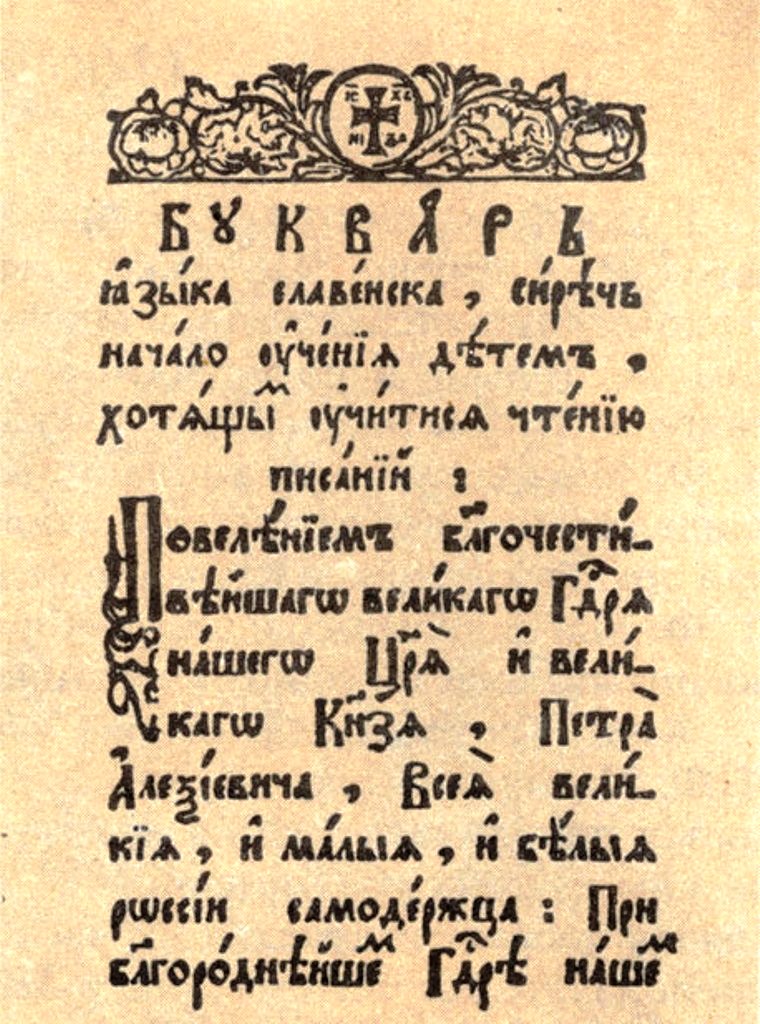 І҃С Х҃С
НИ КА
БꙊКВА́РЬ
ꙗ҆зы́ка славе́нска , си́рѣчь
нача́ло ᲂу҆че́нїѧ дѣ́темъ ,
хотѧ́щыⷨ ᲂу҆чи́тисѧ чте́нїю
писа́нїй :
Повелѣ́нїемъ бл҃гочести́-
вѣ́йшагѡ вели́кагѡ Гдⷭ҇рѧ
на́шегѡ Цр҃ѧ̀ и҆ вели́-
кагѡ Кн҃зѧ , Петра̀
А҆леѯі́евича , Всеѧ̀ вели́-
кїѧ , и҆ ма́лыѧ , и҆ бѣ́лыѧ
рѡссі́и самоде́ржца : При
бл҃горо́днѣйшеⷨ Гдⷭ҇рѣ на́шеⷨ